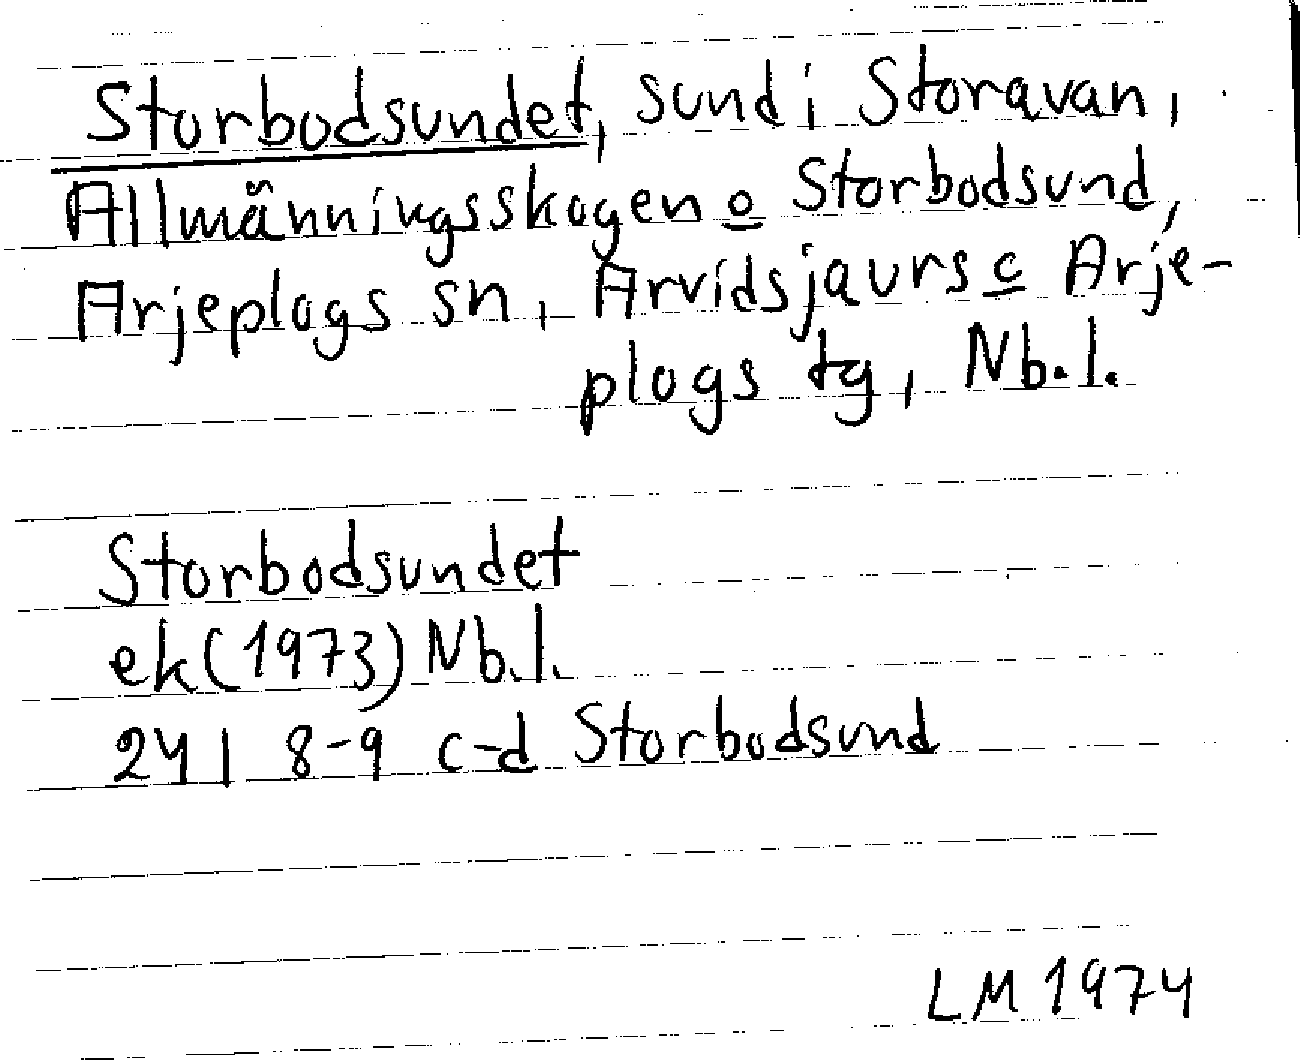 Storbodsundet, sund i Storavan,
Allmänningsskogen o Storbodsund,
Arjeplogs sn, Arvidsjaurs o Arje-
plogs tg, Nb.l.
Storbodsundet
ek (1973) Nb.l.
24 I 8-9 c-d Storbodsund
LM 1974